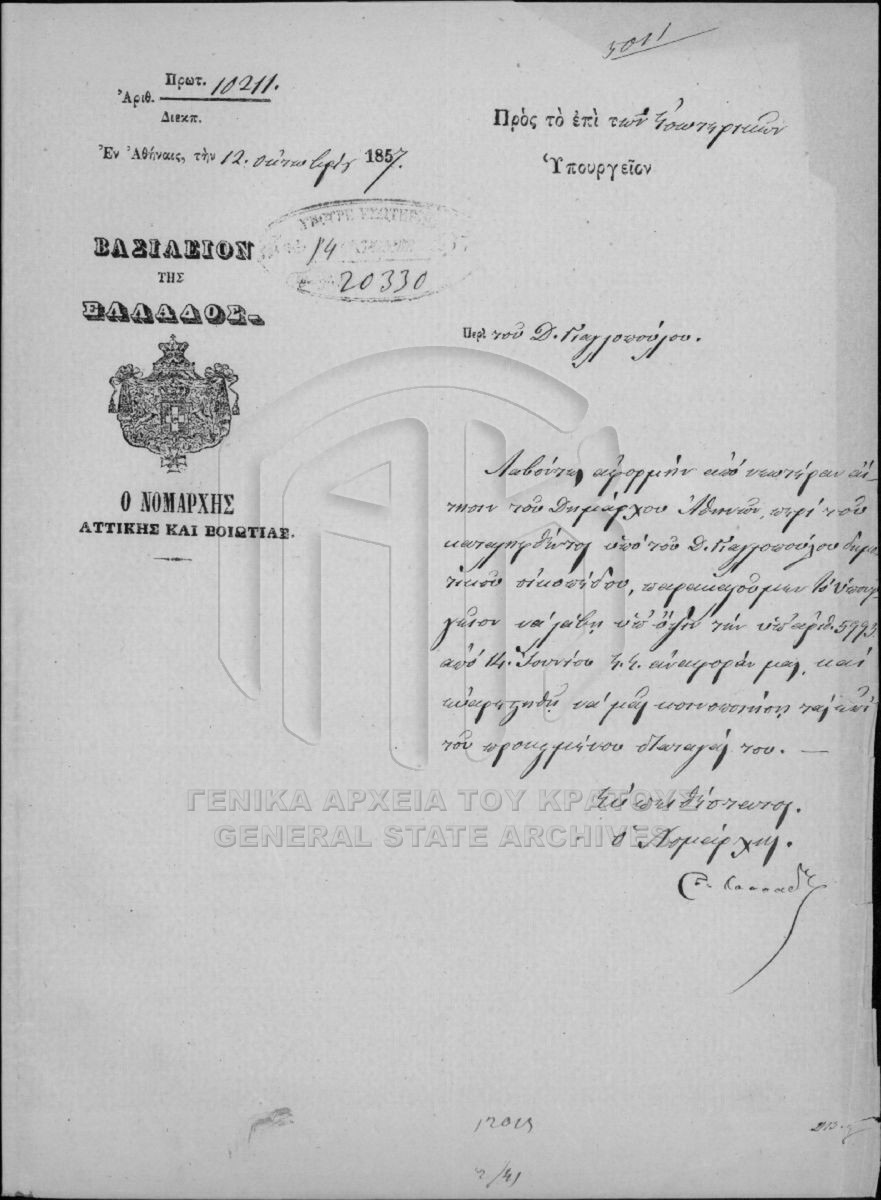 5011
Πρωτ. 10211.
Ἀριθ.
Διεκπ.
Ἐν Ἀθήναις, τὴν 12. Ὀκτωβρίου 1857.
Πρὸς τὸ ἐπὶ τῶν Ἐσωτερικῶν
Ὑπουργεῖον
14
20330
ΒΑΣΙΛΕΙΟΝ
ΤΗΣ
ΕΛΛΑΔΟΣ.
Ο ΝΟΜΑΡΧΗΣ
ΑΤΤΙΚΗΣ ΚΑΙ ΒΟΙΩΤΙΑΣ.
Περὶ τοῦ Δ. Καλλοπούλου.
Λαβόντες ἀφορμὴν ἀπὸ νεωτέραν αἴ-
τησιν τοῦ Δημάρχου Ἀθηνῶν, περὶ τοῦ
καταληφθέντος ὑπὸ τοῦ Δ. Καλλοπούλου δημο-
τικοῦ οἰκοπέδου, παρακαλοῦμεν τὸ Ὑπουρ-
γεῖον νὰ λάβῃ ὑπ' ὄψιν τὴν ὑπ' ἀριθ. 5993
ἀπὸ 14. Ἰουνίου ἔ.ἔ. ἀναφοράν μας, καὶ
εὐαρεστηθῇ νὰ μᾶς κοινοποιήσῃ τὰς ἐπὶ
τοῦ προκειμένου διαταγάς του. —
Εὐπειθέστατος.
ὁ Νομάρχης.
ΓΕΝΙΚΑ ΑΡΧΕΙΑ ΤΟΥ ΚΡΑΤΟΥΣ
GENERAL STATE ARCHIVES